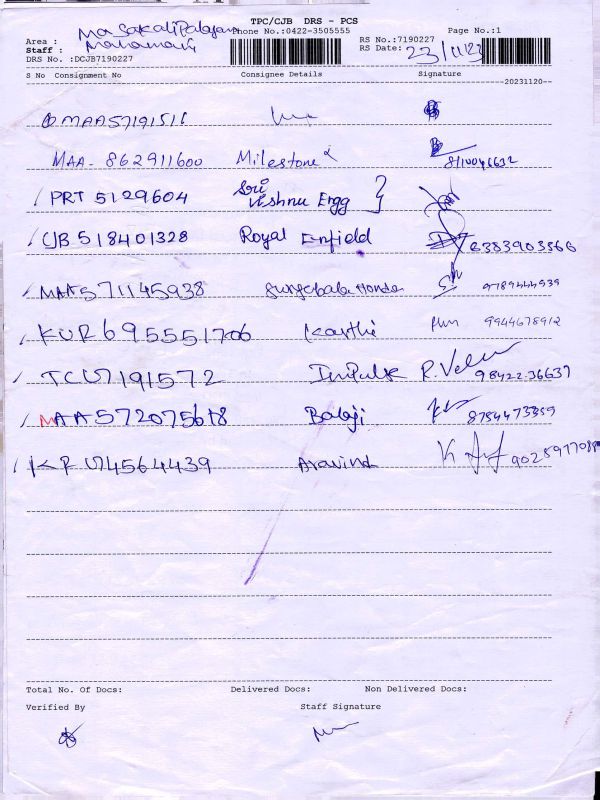 TPC/CJB DRS - PCS
Area : Masakalipalayam Phone No.:0422-3505555 RS No.:7190227 Page No.:1
Staff : RS Date: 23/11/23
DRS No. :DCJB7190227
S No Consignment No Consignee Details Signature
20231120--
MAA571915
MAA- 862911600 Milestone
PRT 5129604 Sri Vishnu Engg
CJB 518401328 Royal Enfield 6383903566
MAA571145938 Honda 9789444939
KUR695551706 Karthi 9944678912
TCU7191572 Impulse R. Velu 98422 36637
MAA572075618 Balaji 8754473359
KRU74564439 Aravind K
Total No. Of Docs: Delivered Docs: Non Delivered Docs:
Verified By Staff Signature